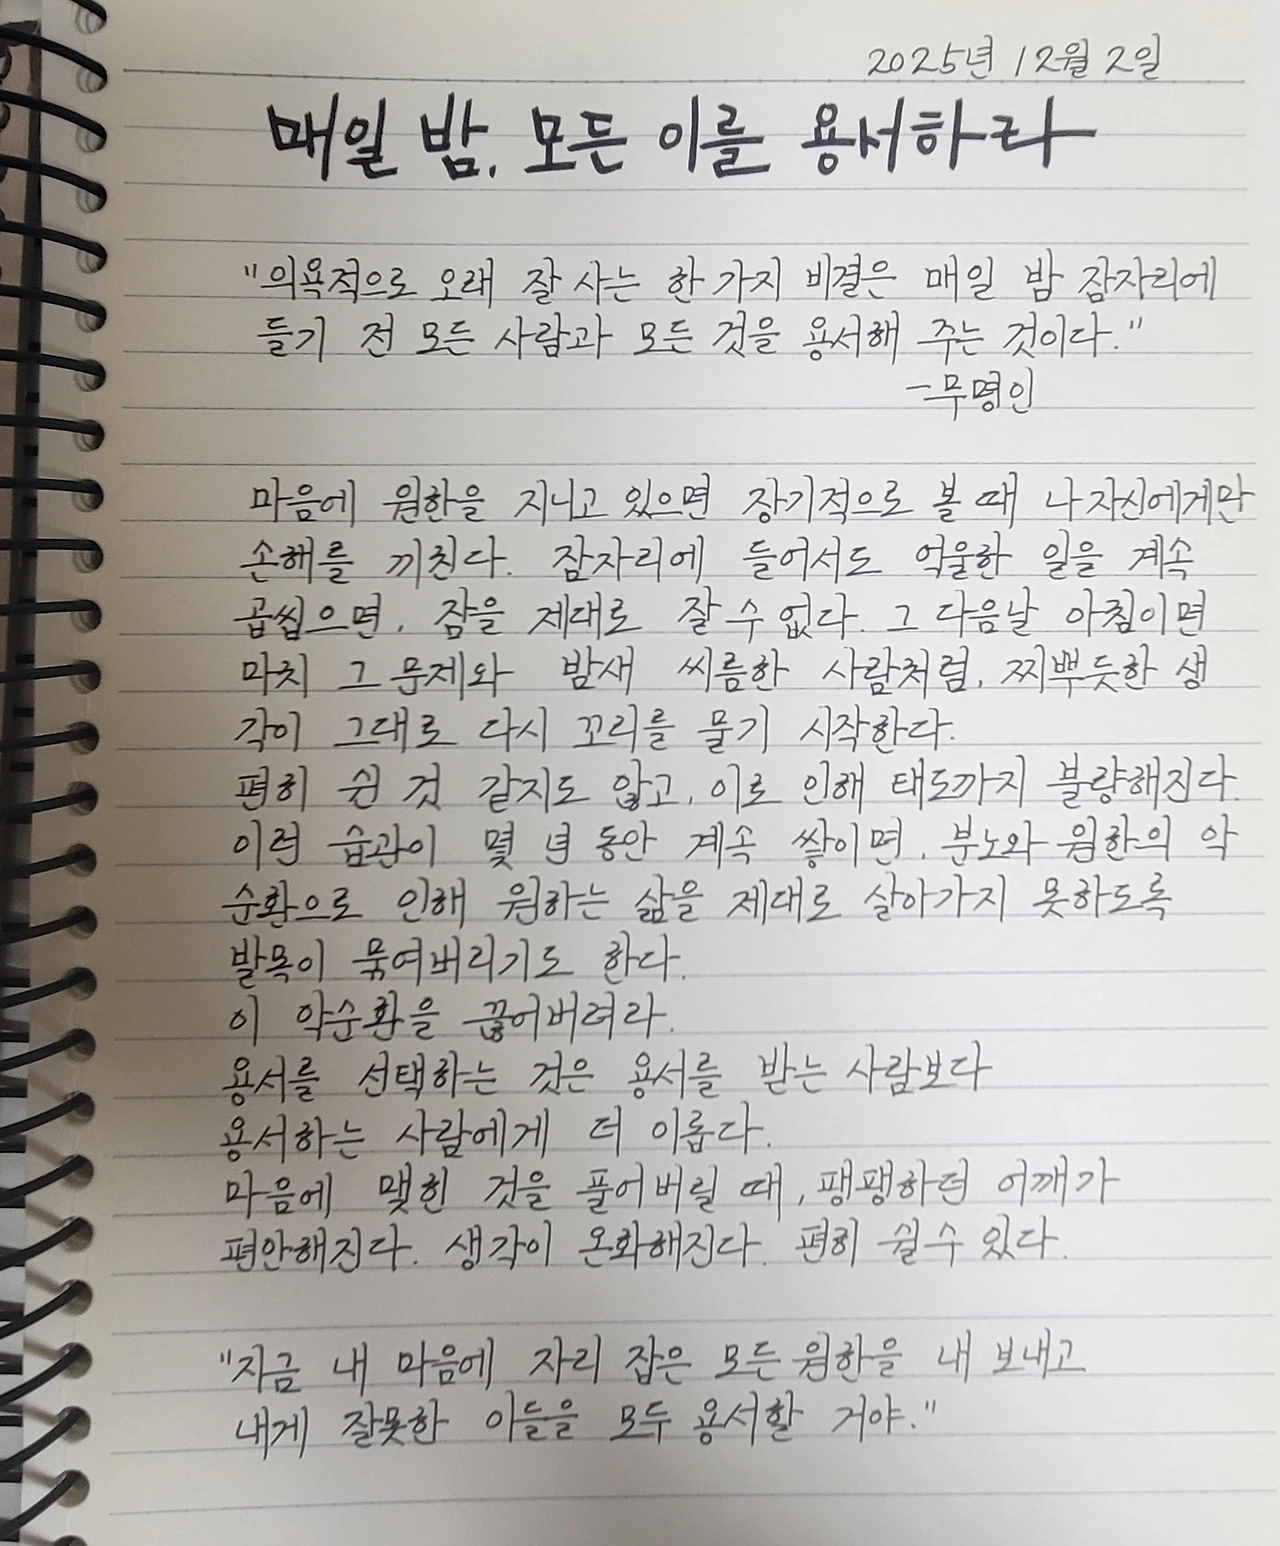 2025년 12월 2일
매일 밤, 모든 이를 용서하라
"의욕적으로 오래 잘 사는 한 가지 비결은 매일 밤 잠자리에
들기 전 모든 사람과 모든 것을 용서해 주는 것이다."
-무명인
마음에 원한을 지니고 있으면 장기적으로 볼 때 나 자신에게만
손해를 끼친다. 잠자리에 들어서도 억울한 일을 계속
곱씹으면, 잠을 제대로 잘 수 없다. 그 다음날 아침이면
마치 그 문제와 밤새 씨름한 사람처럼, 찌뿌듯한 생
각이 그대로 다시 꼬리를 물기 시작한다.
편히 쉰 것 같지도 않고, 이로 인해 태도까지 불량해진다.
이런 습관이 몇 년 동안 계속 쌓이면, 분노와 원한의 악
순환으로 인해 원하는 삶을 제대로 살아가지 못하도록
발목이 묶여버리기도 한다.
이 악순환을 끊어버려라.
용서를 선택하는 것은 용서를 받는 사람보다
용서하는 사람에게 더 이롭다.
마음에 맺힌 것을 풀어버릴 때, 팽팽하던 어깨가
편안해진다. 생각이 온화해진다. 편히 쉴 수 있다.
"지금 내 마음에 자리 잡은 모든 원한을 내 보내고
내게 잘못한 이들을 모두 용서할 거야."